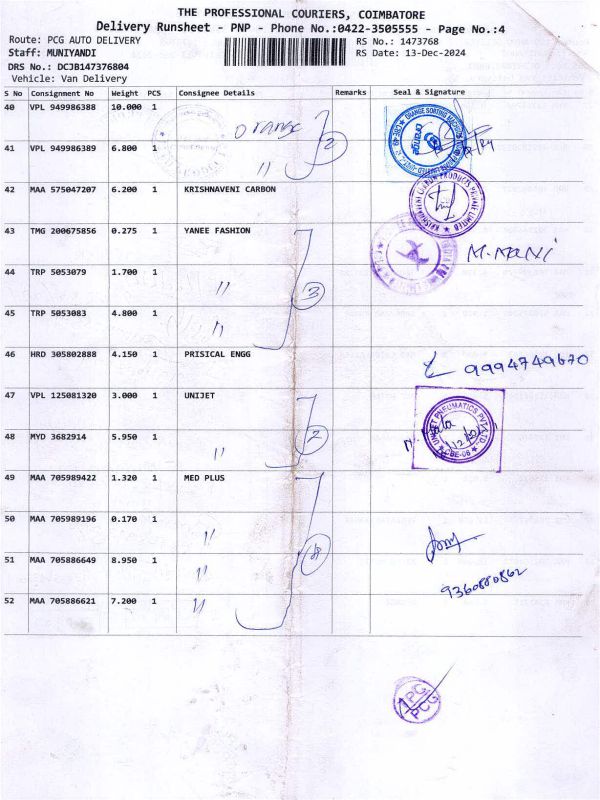 THE PROFESSIONAL COURIERS, COIMBATORE
Delivery Runsheet - PNP - Phone No.:0422-3505555 - Page No.:4
Route: PCG AUTO DELIVERY RS No.: 1473768
Staff: MUNIYANDI RS Date: 13-Dec-2024
DRS No.: DCJB147376804
Vehicle: Van Delivery
S No Consignment No Weight PCS Consignee Details Remarks Seal & Signature
40 VPL 949986388 10.000 1 Orange
2
41 VPL 949986389 6.800 1 "
42 MAA 575047207 6.200 1 KRISHNAVENI CARBON
43 TMG 200675856 0.275 1 YANEE FASHION M.MANI
44 TRP 5053079 1.700 1 "
3
45 TRP 5053083 4.800 1 "
46 HRD 305802888 4.150 1 PRISICAL ENGG 9994749670
47 VPL 125081320 3.000 1 UNIJET
UNIJET PNEUMATICS PVT.LTD. CBE-06
2
48 MYD 3682914 5.950 1 "
49 MAA 705989422 1.320 1 MED PLUS
50 MAA 705989196 0.170 1 "
51 MAA 705886649 8.950 1 "
9360880862
52 MAA 705886621 7.200 1 "
PCG